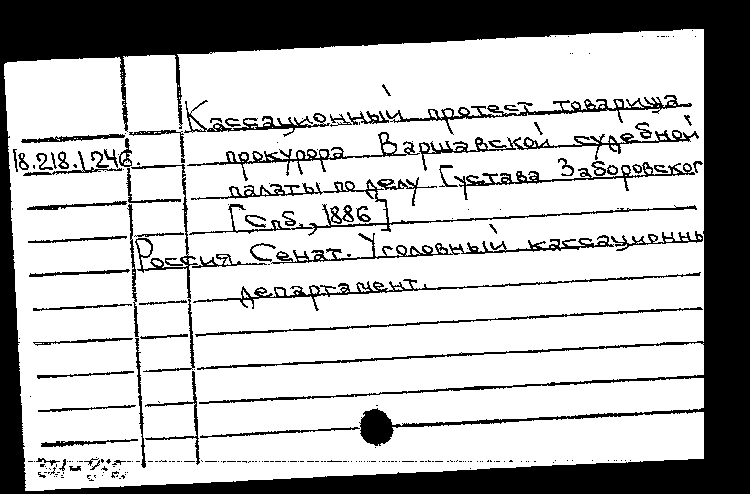 Кассационный протест товарища
18.218.1.246. прокурора Варшавской судебной
палаты по делу Густава Заборовског
[Спб., 1886].
Россия. Сенат. Уголовный кассационны
департамент.